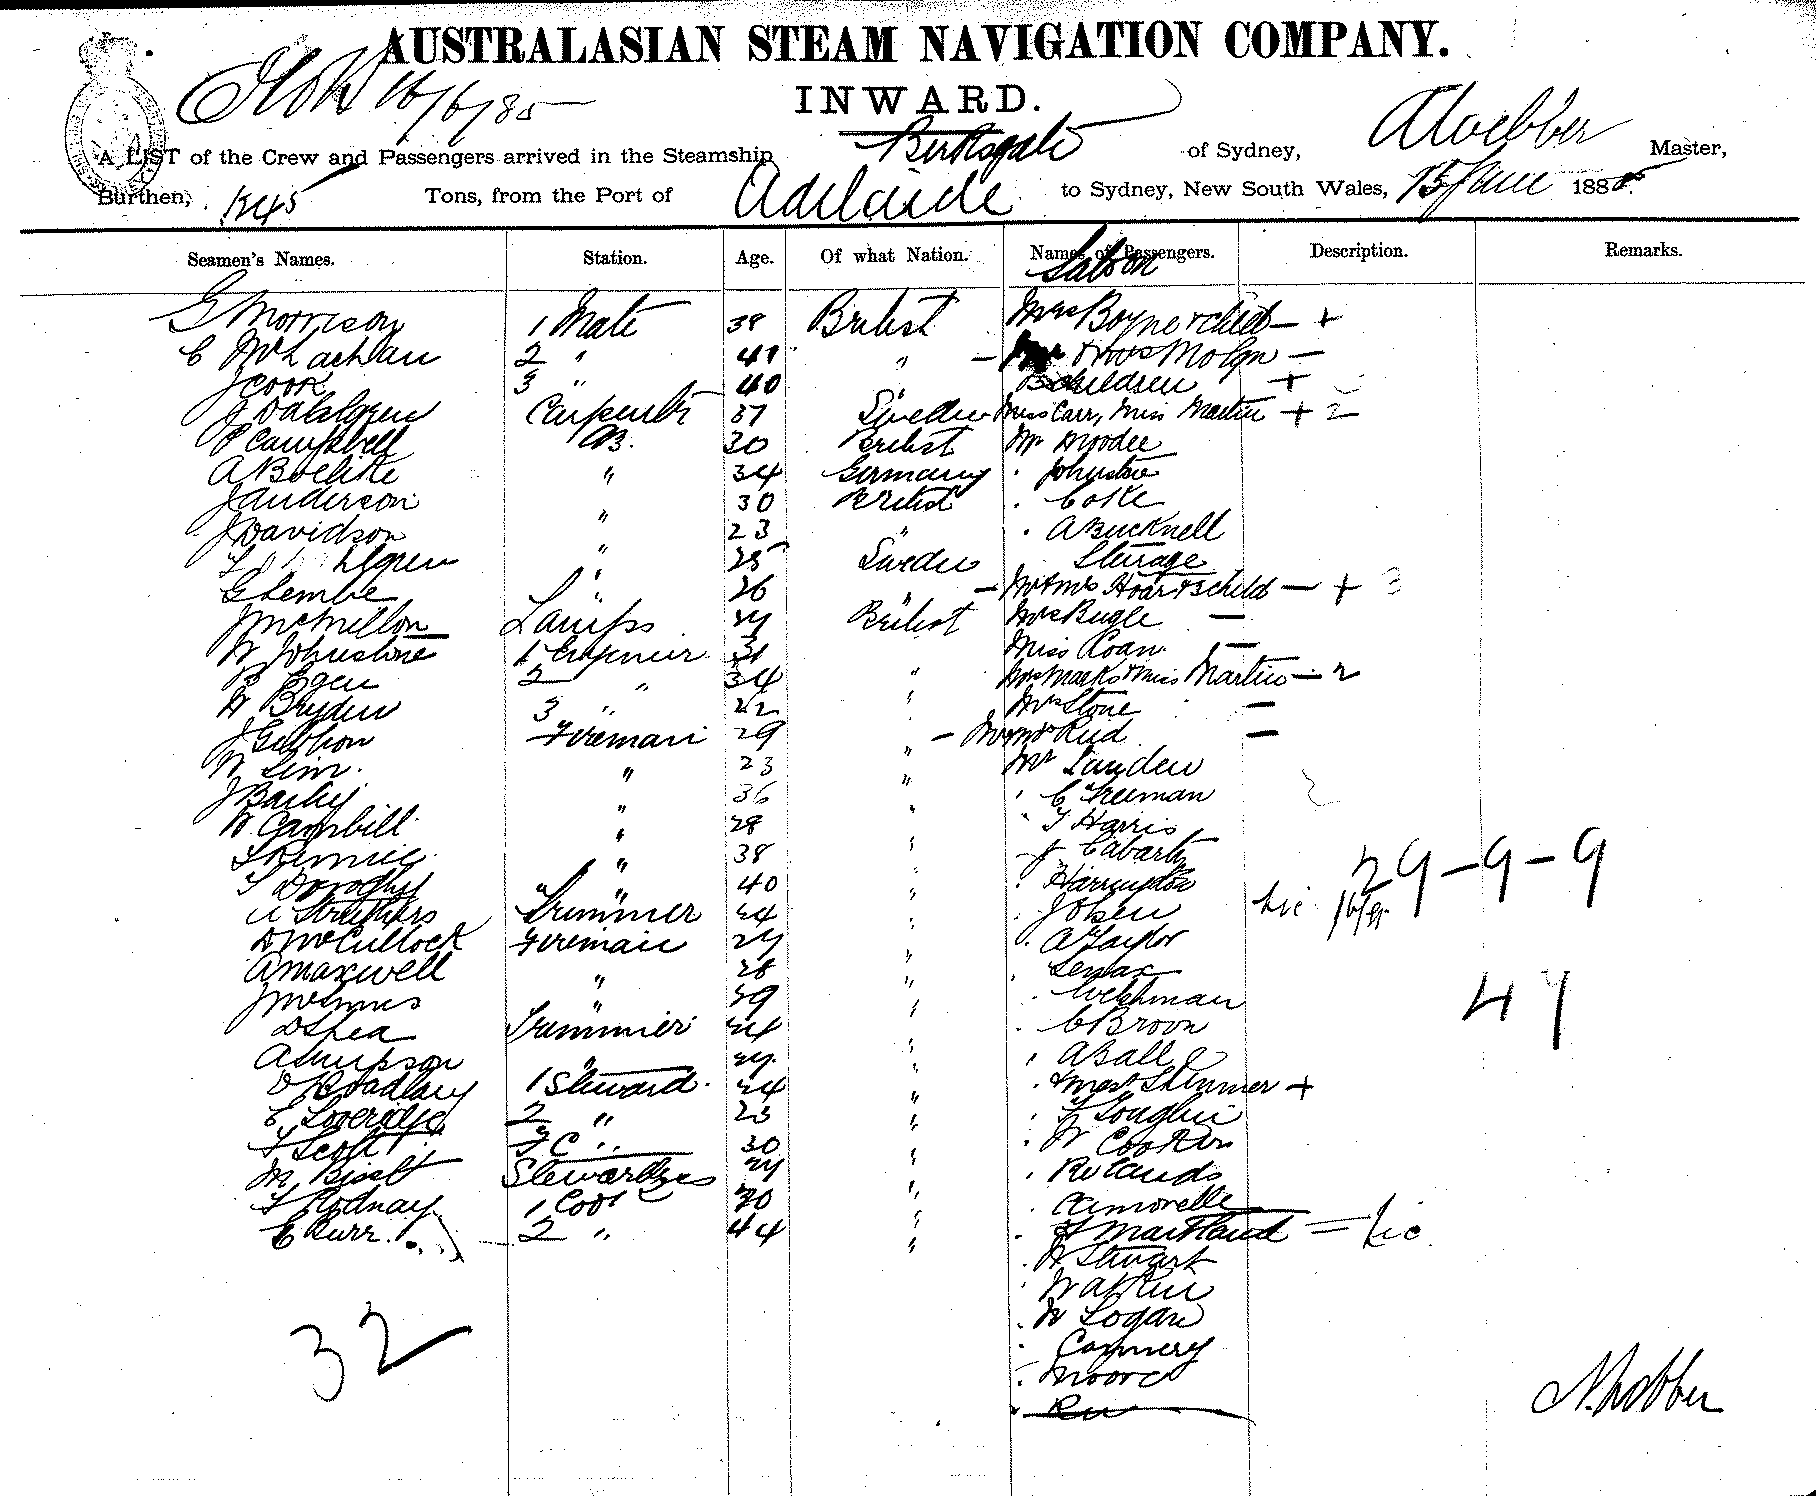 AUSTRALASIAN STEAM NAVIGATION COMPANY.
16/6/85
INWARD.
A LIST of the Crew and Passengers arrived in the Steamship Birksgate of Sydney, A Webber Master,
Burthen, 1245 Tons, from the Port of Adelaide to Sydney, New South Wales, 15 June 1885
Seamen's Names. Station. Age. Of what Nation. Names of Passengers. Description. Remarks.
Saloon
G Morrison 1 Mate 38 British Mrs Boyne & child — +
C McLachlan 2 " 41 " — Mrs Molyn —
J Cook 3 " 40 " children +
J Dahlgren Carpenter 37 Sweden Miss Carr, Miss Martin + 2
P Campbell AB. 30 British Mr Moodie
A Boelike " 34 Germany " Johnstone
J Anderson " 30 British " Coke
J Davidson " 23 " " A Bucknell
hlgren " 25 Sweden Steerage
G Lembe " 26 " — Mr & Mrs Hoar & child — + 3
J McMillon Lamps 27 British Mrs Bugle —
W Johnstone 1 Engineer 31 Miss Roan —
P Egen 2 " 34 " Mrs Marks & Miss Martin — 2
W Bryden 3 " 22 " Mrs Stone —
J Gibbon Fireman 29 " — Reid —
W Sim. " 23 " Mr Lunden
J Bailey " 36 " " C Freeman
W Campbill " 28 " " T Harris
T Rennie " 38 " J Cabarty
T Dorothy " 40 " " Harrington 29-9-9
A Struthers Trimmer 24 " " J Olsen
D McCullock Fireman 27 " " A Taylor
A Maxwell " 28 " " Lenax
J McInnis " 29 " " Welshman 47
D Shea Trimmer 24 " " C Broon
A Simpson " 27 " " A Ball
D Broadley 1 Steward 24 " " Skinner +
E Loveridge 2 " 23 " " Loughlin
T Scott 3 C " 30 " " W Cooken
M Bisett Stewardess 27 " " Rolands
T Rodnay 1 Cook 30 "
C Burr. 2 " 44 " " Maitland =
" W Stewart
" Watkin
" W Logan
32 " Cammery
" Moore
A Webber